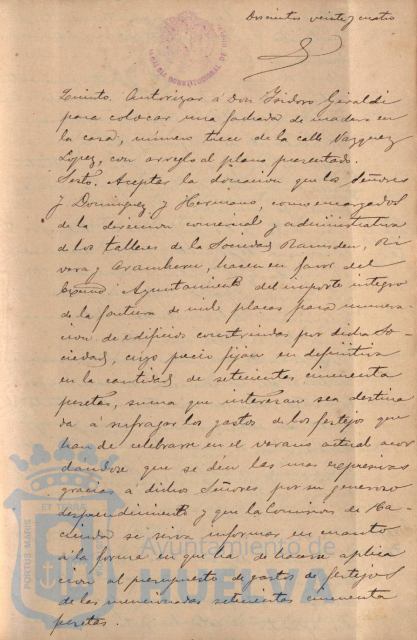 Doscientos veinte y cuatro
Quinto. Autorizar á Don Isidoro Giraldi
para colocar una fachada de madera en
la casa, número trece de la calle Vazquez
Lopez, con arreglo al plano presentado.
Sesto. Aceptar la donacion que los Señores
J Dominguez y Hermano, como encargados
de la direccion comercial y administrativa
de los talleres de la Sociedad Ramsden, Ri
vera y hacen en favor del
Excmo. Ayuntamiento del importe integro
de la factura de mil placas para numera
cion de edificios construidas por dicha So-
ciedad, cuyo precio fijan en definitiva
en la cantidad de setecientas cincuenta
pesetas, suma que interesan sea destina
da á sufragar los gastos de los festejos que
han de celebrarse en el verano actual acor
dándose que se dén las mas espresivas
gracias á dichos Señores por su generoso
desprendimiento y que la Comision de Ha-
cienda se sirva informar en cuanto
á la forma en que ha de hacerse aplica
cion al presupuesto de gastos de festejos
de las mencionadas setecientas cincuenta
pesetas.
PORTUS MARIS
ET TERRAE
Ayuntamiento de
HUELVA